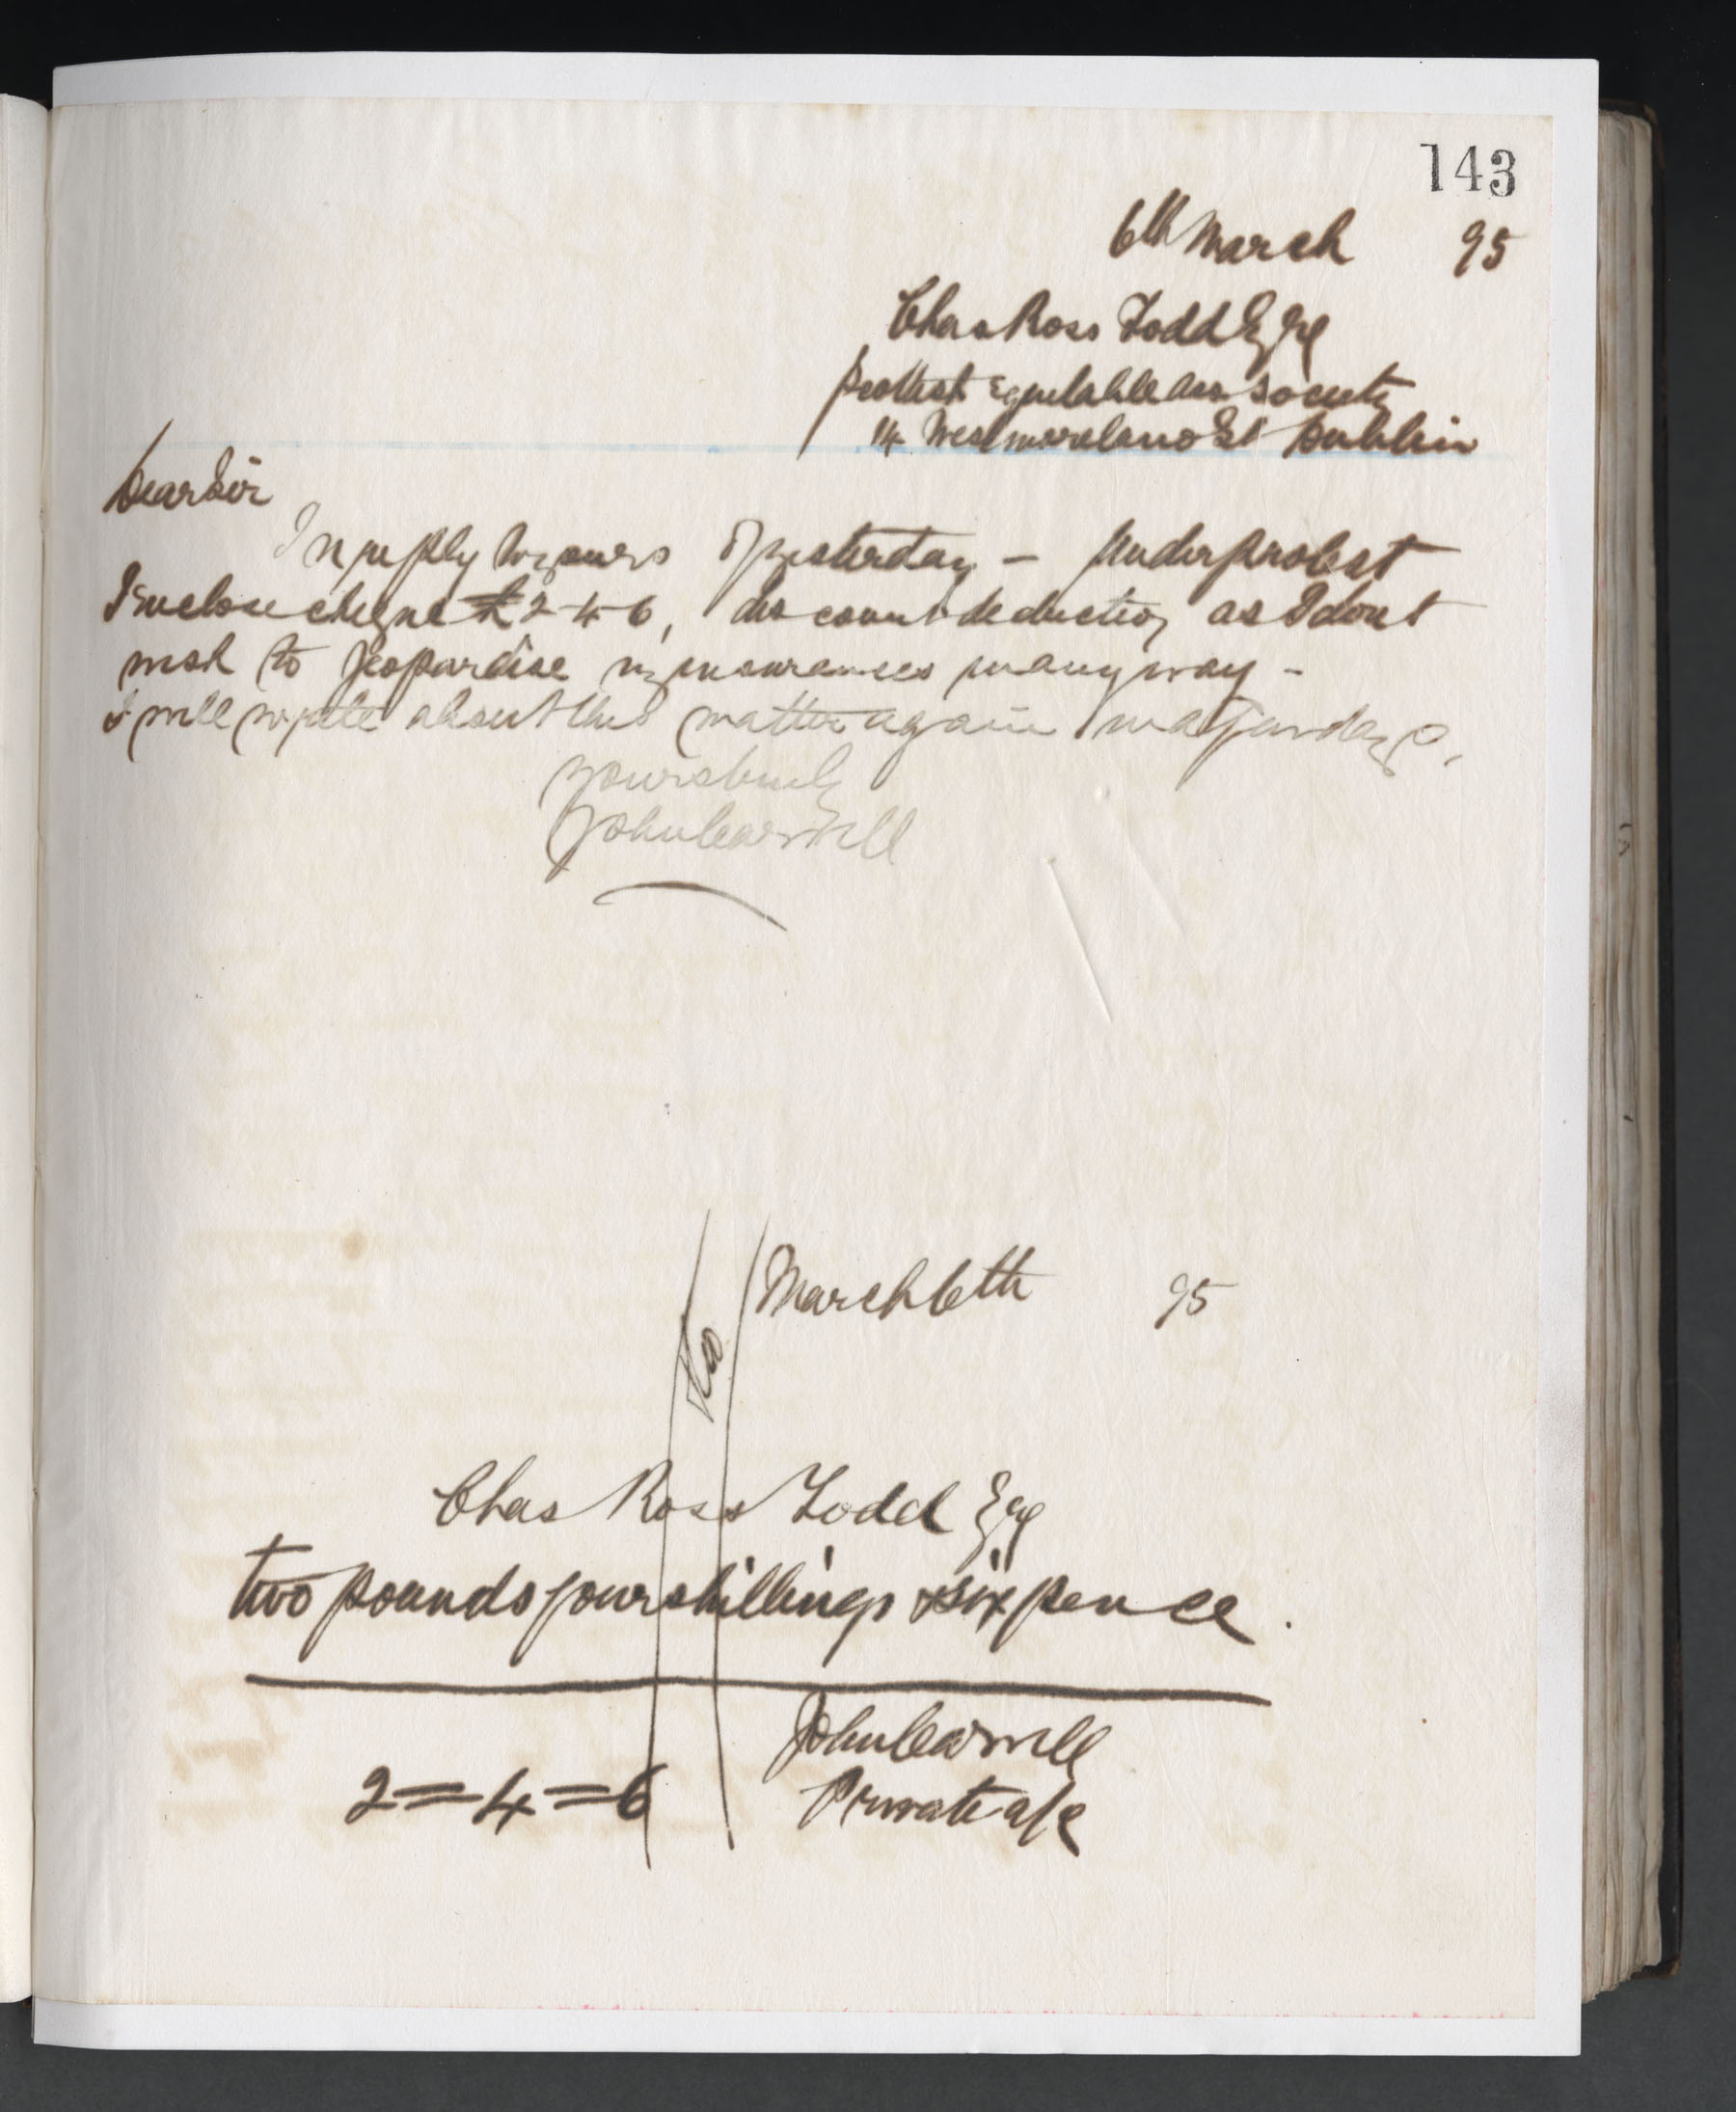 143
6th March 95
Chas Ross Todd Esqe
Scottish Equitable Ass Society
14 Westmoreland St Dublin
Dear Sir
In reply to yours of yesterday - Under protest
I enclose cheque £2-4-6, discount deduction as I dont
wish to jeopardise my insurances in any way -
I will write about this matter again in a few days,
yours truly
John Carvill
March 6th 95
& Co
Chas Ross Todd Esqe
two pounds four shillings & six pence.
John Carvill
2=4=6 Private a/c